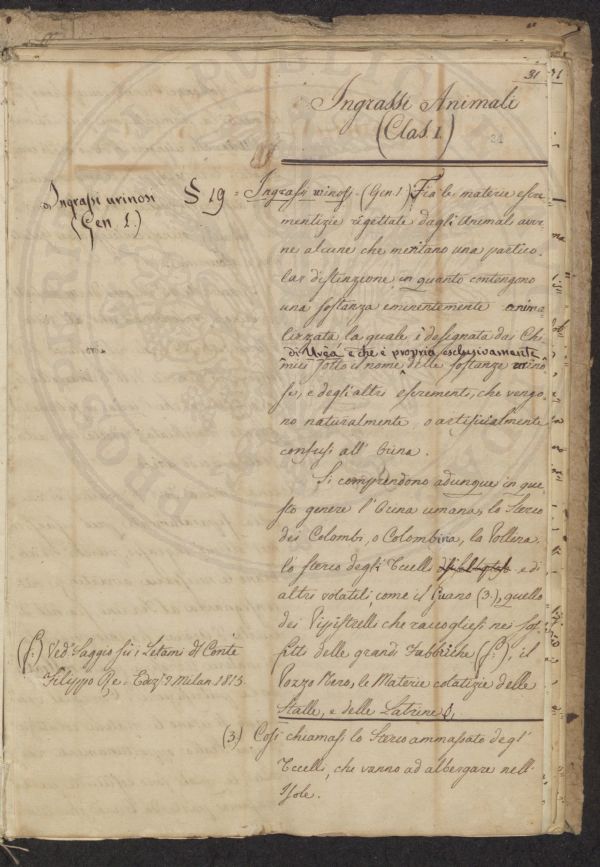 31
Ingrassi Animali
(Clas. 1.)
31
Ingrassi urinosi
(Gen. 1.)
§ 19 = Ingrassi urinosi (Gen. 1) Fra le materie escre-
mentizie rigettate dagli Animali avve-
ne alcune che meritano una partico-
lar distinzione, in quanto contengono
una sostanza eminentemente anima-
lizzata la quale è designata dai Chi-
di Urea e che è propria esclusivamente
mici sotto il nome delle sostanze urino-
se, e degli altri escrementi, che vengo-
no naturalmente, o artificialmente
confusi all' Orina.
Si comprendono adunque in que-
sto genere l'Orina umana, lo Sterco
dei Colombi, o Colombina, la Pollina
lo sterco degli Uccelli e di
altri volatili, come il Guano (3.), quello
dei Pipistrelli che raccogliesi nei sof-
fitti delle grandi Fabbriche (f.), il
Pozzo Nero, le Materie delle
Stalle, e delle Latrine.
(f.) Ved.º Saggio su i Letami del Conte
Filippo Re. Ediz.º Milan 1813
(3.) Così chiamasi lo Sterco ammassato degl'
Uccelli, che vanno ad albergare nell'
Isole.